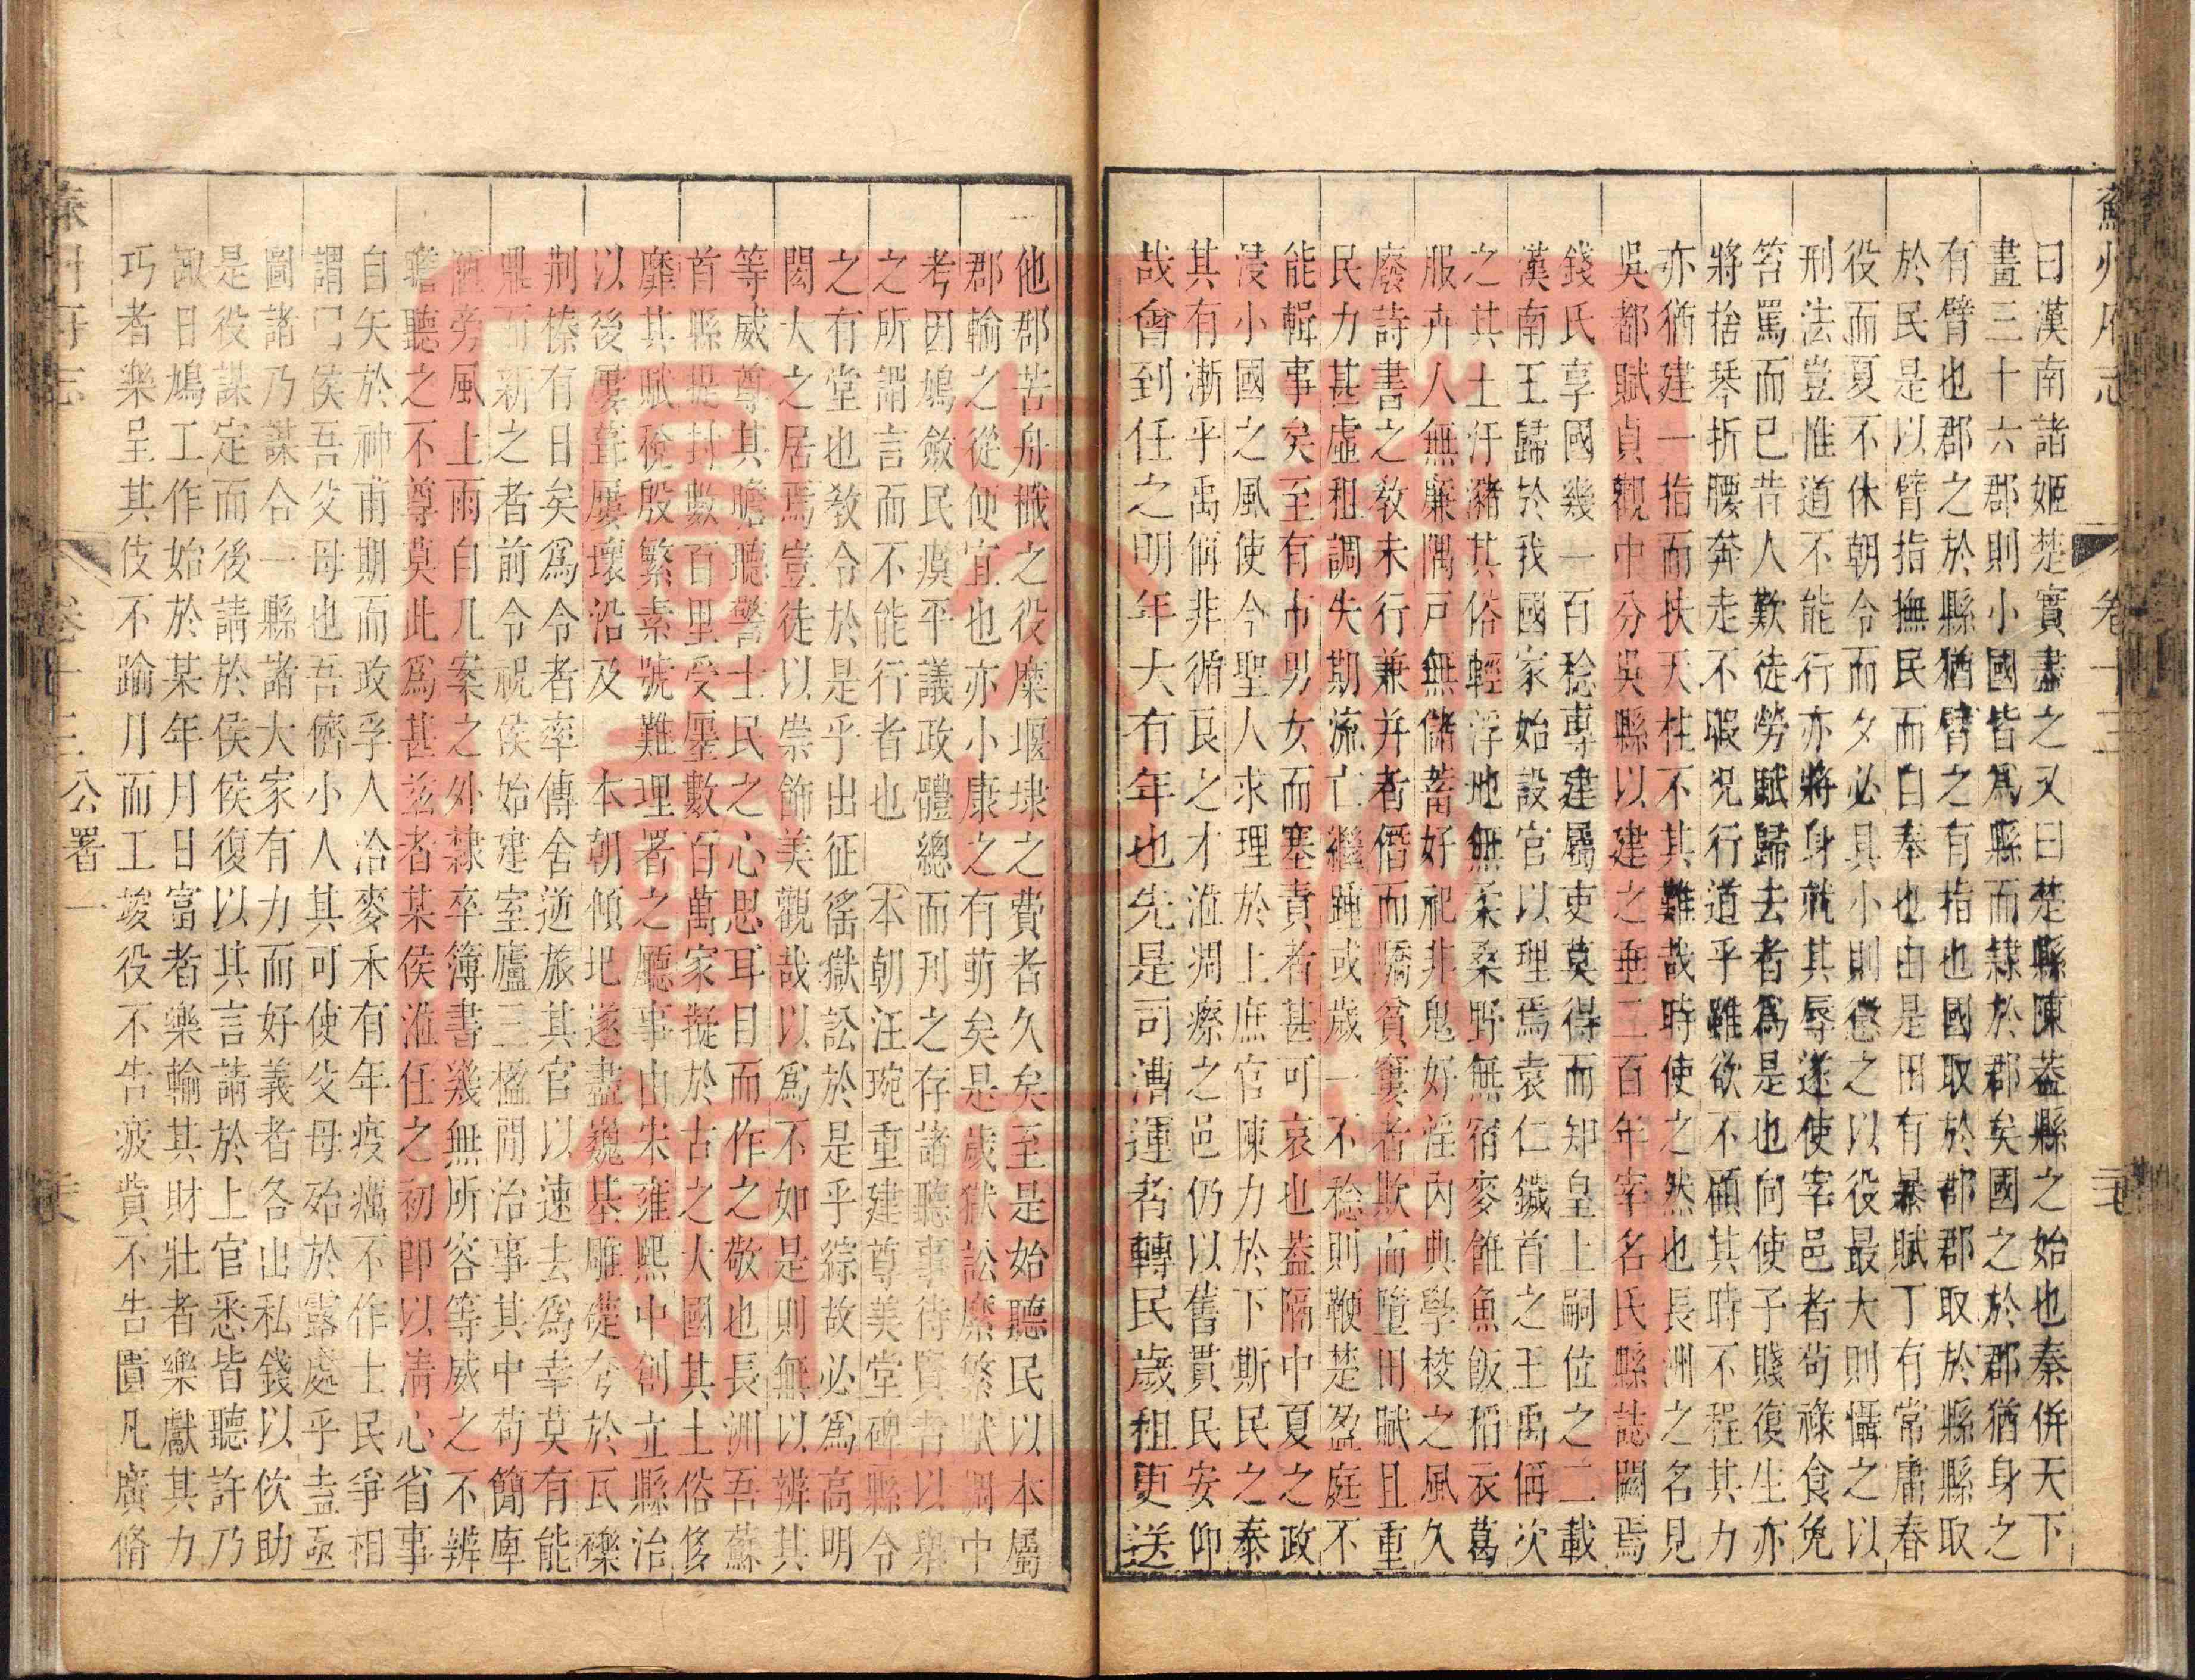 蘇州府志 卷十三
曰漢南諸姬楚實盡之又曰楚縣陳蓋縣之始也秦併天下
畫三十六郡則小國皆爲縣而隸於郡矣國之於郡猶身之
有臂也郡之於縣猶臂之有指也國取於郡郡取於縣縣取
於民是以臂指撫民而自奉也由是田有暴賦丁有常庸春
役而夏不休朝令而夕必具小則懲之以役最大則懾之以
刑法豈惟道不能行亦將身就其辱遂使宰邑者苟祿食免
笞罵而已昔人歎徒勞賦歸去者爲是也向使子賤復生亦
將捨琴折腰奔走不暇況行道乎雖欲不顧其時不程其力
亦猶建一指而扶天柱不其難哉時使之然也長洲之名見
吳都賦貞觀中分吳縣以建之垂三百年宰名氏縣誌闕焉
錢氏享國幾一百稔專建屬吏莫得而知皇上嗣位之二載
漢南王歸於我國家始設官以理焉袁仁鏚首之王禹偁次
之其土汙瀦其俗輕浮地無柔桑野無宿麥飯魚飯稻衣葛
服卉人無廉隅戸無儲蓄好祀非鬼好淫內典學校之風久
廢詩書之教未行兼并者僭而驕貧窶者欺而墮田賦且重
民力甚虛租調失期流亡繼踵或歲一不稔則鞭楚盈庭不
能輯事矣至有市男女而塞責者甚可哀也蓋隔中夏之政
浸小國之風使今聖人求理於上庶官陳力於下斯民之泰
其有漸乎禹偁非循良之才涖凋瘵之邑仍以舊貫民安仰
哉會到任之明年大有年也先是司漕運者轉民歲租更送
他郡苦舟檝之役糜堰埭之費者久矣至是始聽民以本屬
郡輸之從便宜也亦小康之有萠矣是歲獄訟糜繁賦調中
考因鳩斂民瘼平議政體總而刊之存諸聽事待賢者以舉
之所謂言而不能行者也 本朝汪琬重建尊美堂碑縣令
之有堂也敎令於是乎出征徭獄訟於是乎綜故必爲高明
閎大之居焉豈徒以崇飾美觀哉以爲不如是則無以辨其
等威尊其瞻聽警士民之心思耳目而作之敬也長洲吾蘇
首縣提封數百里受廛數百萬家擬於古之大國其土俗侈
靡其賦稅殷繁素號難理署之廳事由宋雍熙中創立縣治
以後屢葺屢壞沿及 本朝傾圯遂盡巍基雕礎夸於瓦礫
荆榛有日矣爲令者率傳舍逆旅其官以速去爲幸莫有能
鼎而新之者前令祝侯始建室廬三楹閒治事其中苟簡庳
陋旁風上雨自几案之外隸卒簿書幾無所容等威之不辨
瞻聽之不尊莫此爲甚兹者某侯涖任之初即以淸心省事
自矢於神甫期而政孚人洽麥禾有年疫癘不作士民爭相
謂曰侯吾父母也吾儕小人其可使父母殆於露處乎盍亟
圖諸乃謀合一縣諸大家有力而好義者各出私錢以佽助
是役謀定而後請於侯侯復以其言請於上官悉皆聽許乃
諏日鳩工作始於某年月日富者樂輸其財壯者樂獻其力
巧者樂呈其伎不踰月而工竣役不告疲貲不告匱凡廣脩
蘇州府志 卷十三 公署一